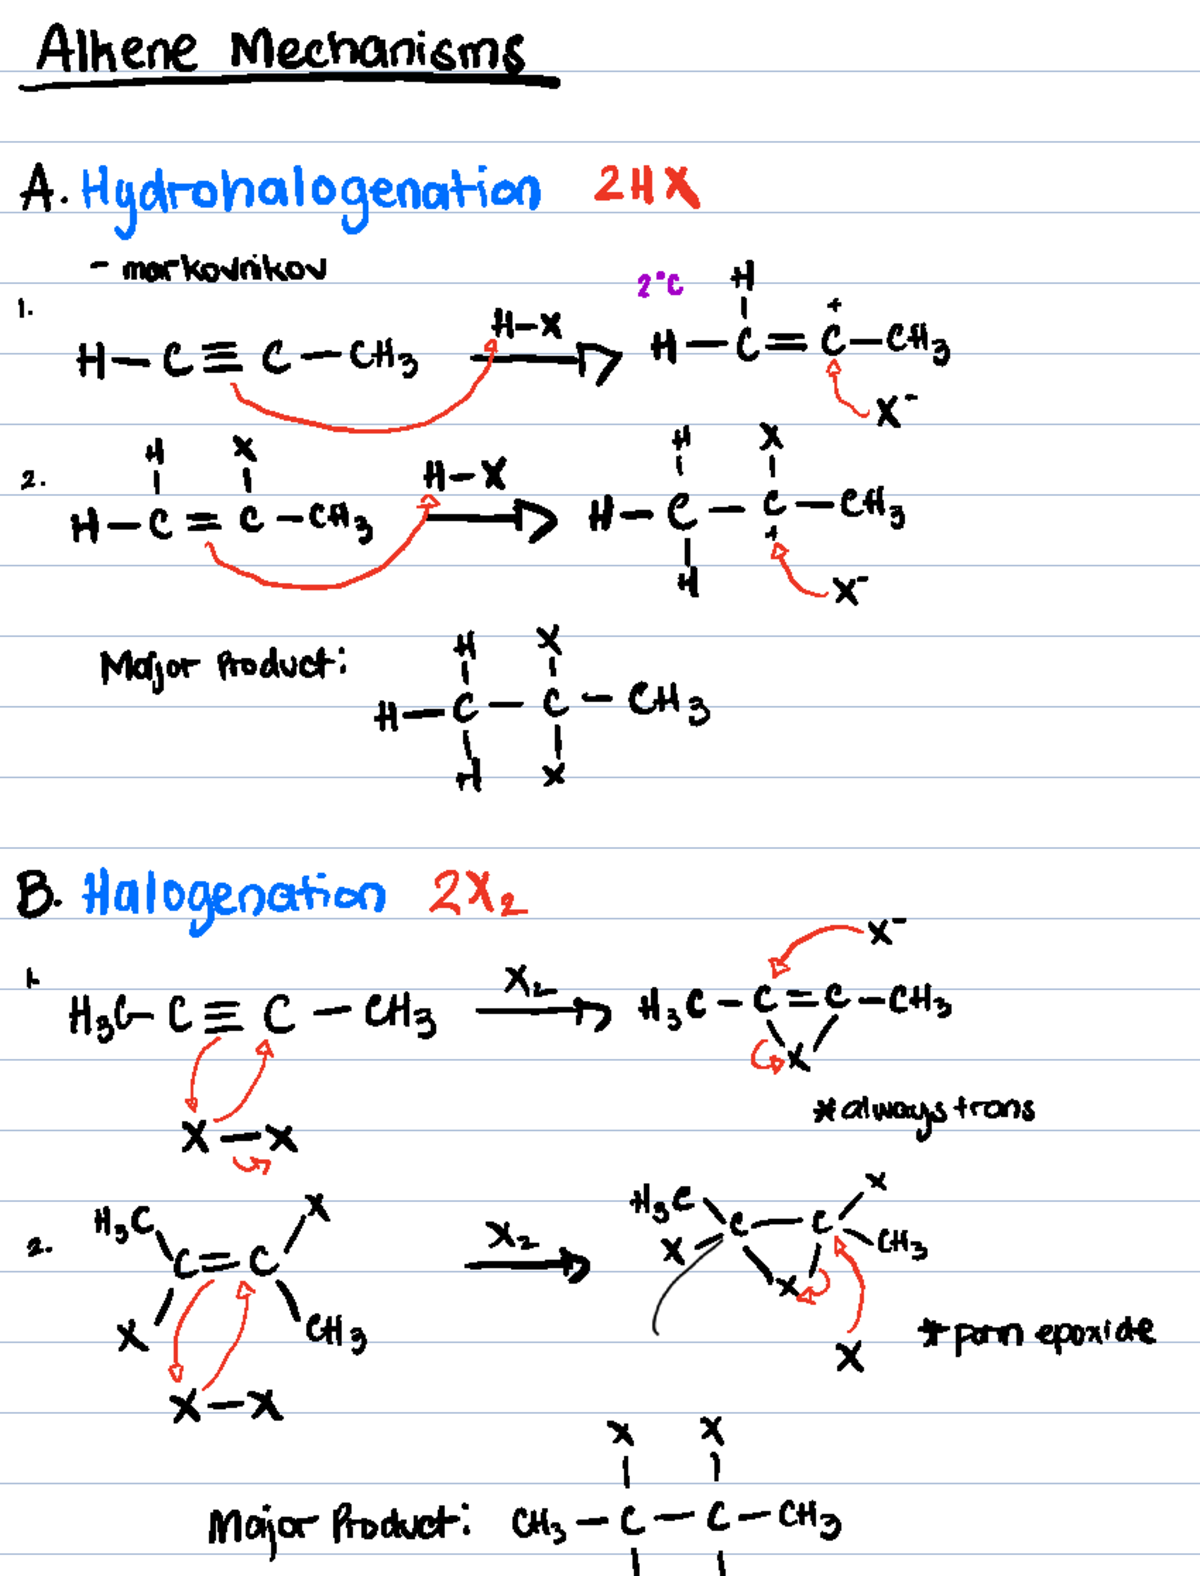 Alkene Mechanisms
A. Hydrohalogenation 2HX
- markovnikov
1.
H-C≡C-CH3
H-X
2°C
H
+
H-C=C-CH3
X-
2.
H X
H-C=C-CH3
H-X
H X
H-C-C-CH3
+
H
X-
Major Product:
H X
H-C-C-CH3
H X
B. Halogenation 2X2
1.
H3C-C≡C-CH3
X-X
X2
X-
H3C-C=C-CH3
X
*always trans
2.
H3C X
C=C
X CH3
X-X
X2
H3C X
C-C
X CH3
X
X
* form epoxide
Major Product:
X X
CH3-C-C-CH3